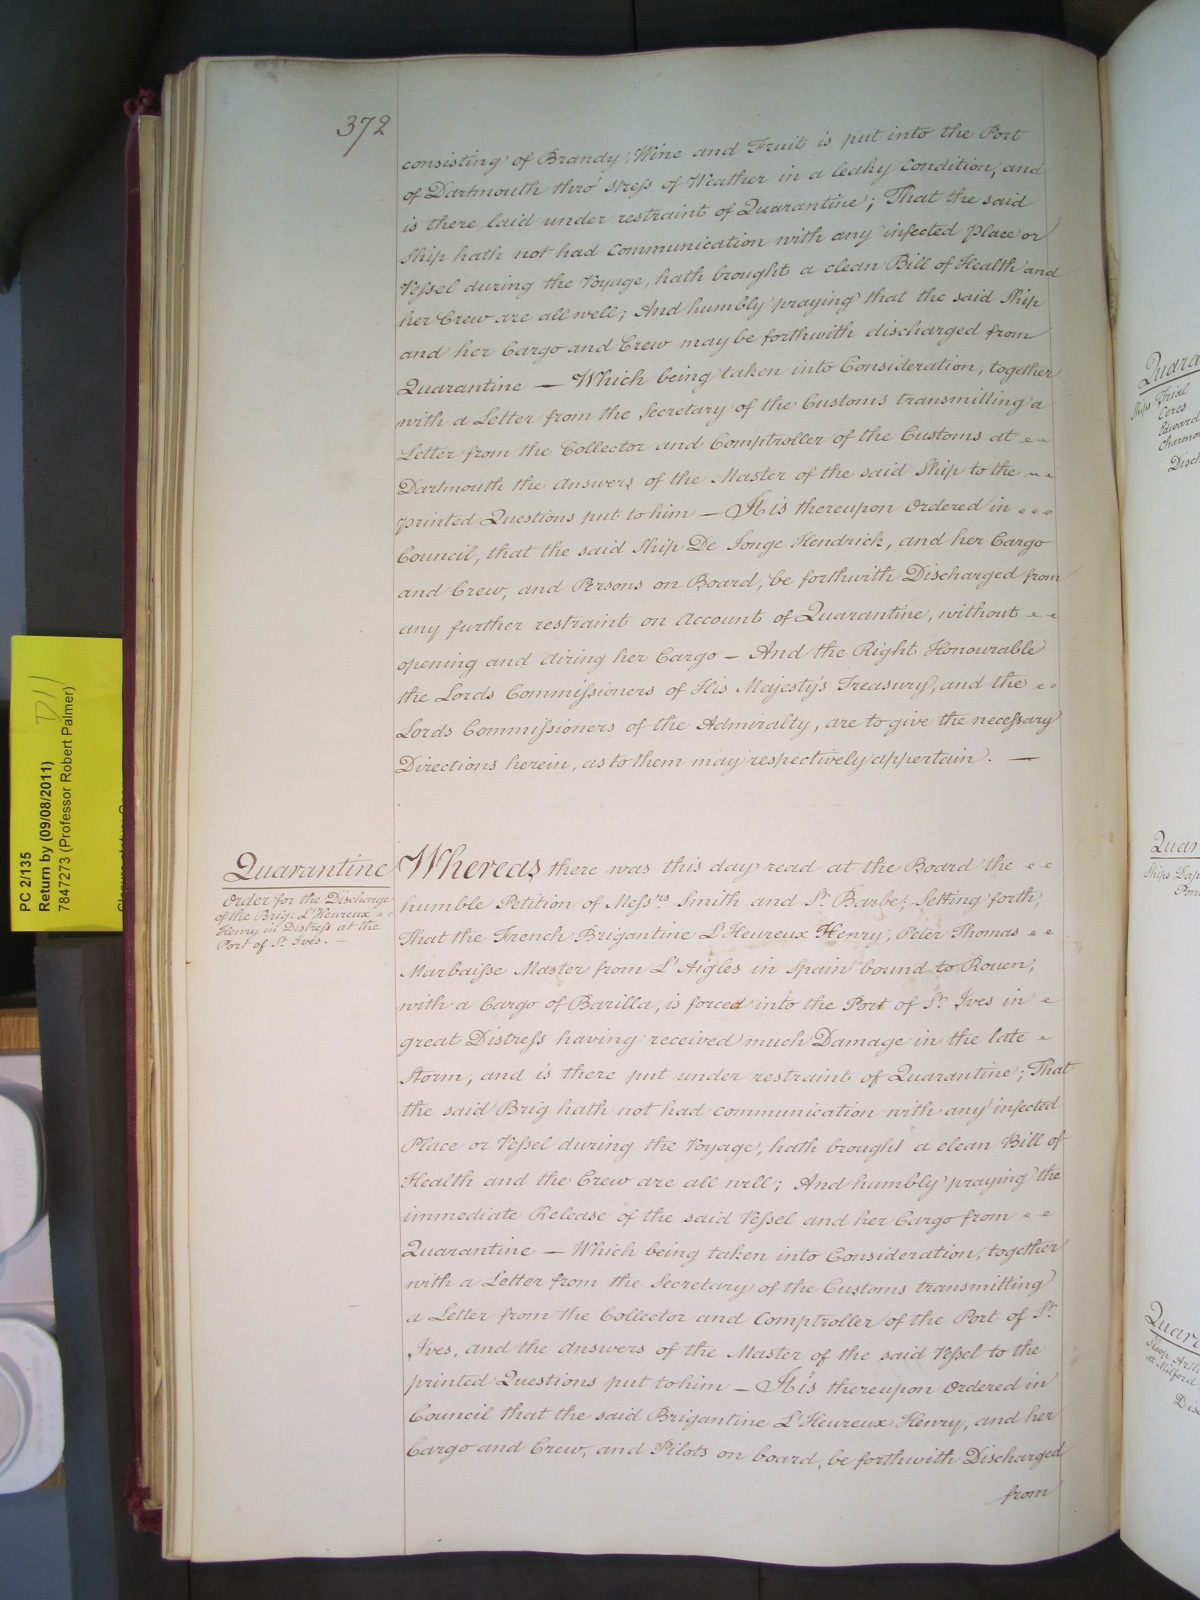 372
consisting of Brandy, Wine and Fruit is put into the Port
of Dartmouth thro' stress of Weather in a leaky Condition, and
is there laid under restraint of Quarantine; That the said
Ship hath not had Communication with any infected Place or
Vessel during the Voyage, hath brought a clean Bill of Health and
her Crew are all well; And humbly praying that the said Ship
and her Cargo and Crew may be forthwith discharged from
Quarantine — Which being taken into Consideration, together
with a Letter from the Secretary of the Customs transmitting a
Letter from the Collector and Comptroller of the Customs at
Dartmouth the Answers of the Master of the said Ship to the
printed Questions put to him — It is thereupon Ordered in
Council, that the said Ship De Jonge Hendrick, and her Cargo
and Crew, and Persons on Board, be forthwith Discharged from
any further restraint on Account of Quarantine, without
opening and airing her Cargo — And the Right Honourable
the Lords Commissioners of His Majesty's Treasury, and the
Lords Commissioners of the Admiralty, are to give the necessary
Directions herein, as to them may respectively appertain. —
Quarantine
Order for the Discharge
of the Brig. L'Heureux
Henry in Distress at the
Port of St Ives. —
Whereas there was this day read at the Board the
humble Petition of Messrs Smith and St Barbe, Setting forth,
That the French Brigantine L'Heureux Henry, Peter Thomas
Marbaisse Master from L'Aigles in Spain bound to Rouen,
with a Cargo of Barilla, is forced into the Port of St Ives in
great Distress having received much Damage in the late
Storm, and is there put under restraint of Quarantine; That
the said Brig hath not had communication with any infected
Place or Vessel during the Voyage, hath brought a clean Bill of
Health and the Crew are all well; And humbly praying the
immediate Release of the said Vessel and her Cargo from
Quarantine — Which being taken into Consideration, together
with a Letter from the Secretary of the Customs transmitting
a Letter from the Collector and Comptroller of the Port of St
Ives, and the Answers of the Master of the said Vessel to the
printed Questions put to him — It is thereupon Ordered in
Council that the said Brigantine L'Heureux Henry, and her
Cargo and Crew, and Pilots on board, be forthwith Discharged
from
PC 2/135
Return by (09/08/2011)
7847273 (Professor Robert Palmer)
D11
Quara
Ships Trial
Ceres
Edward
Disch
Quar
Ships
Quar
Sloop
at Milford
Dis